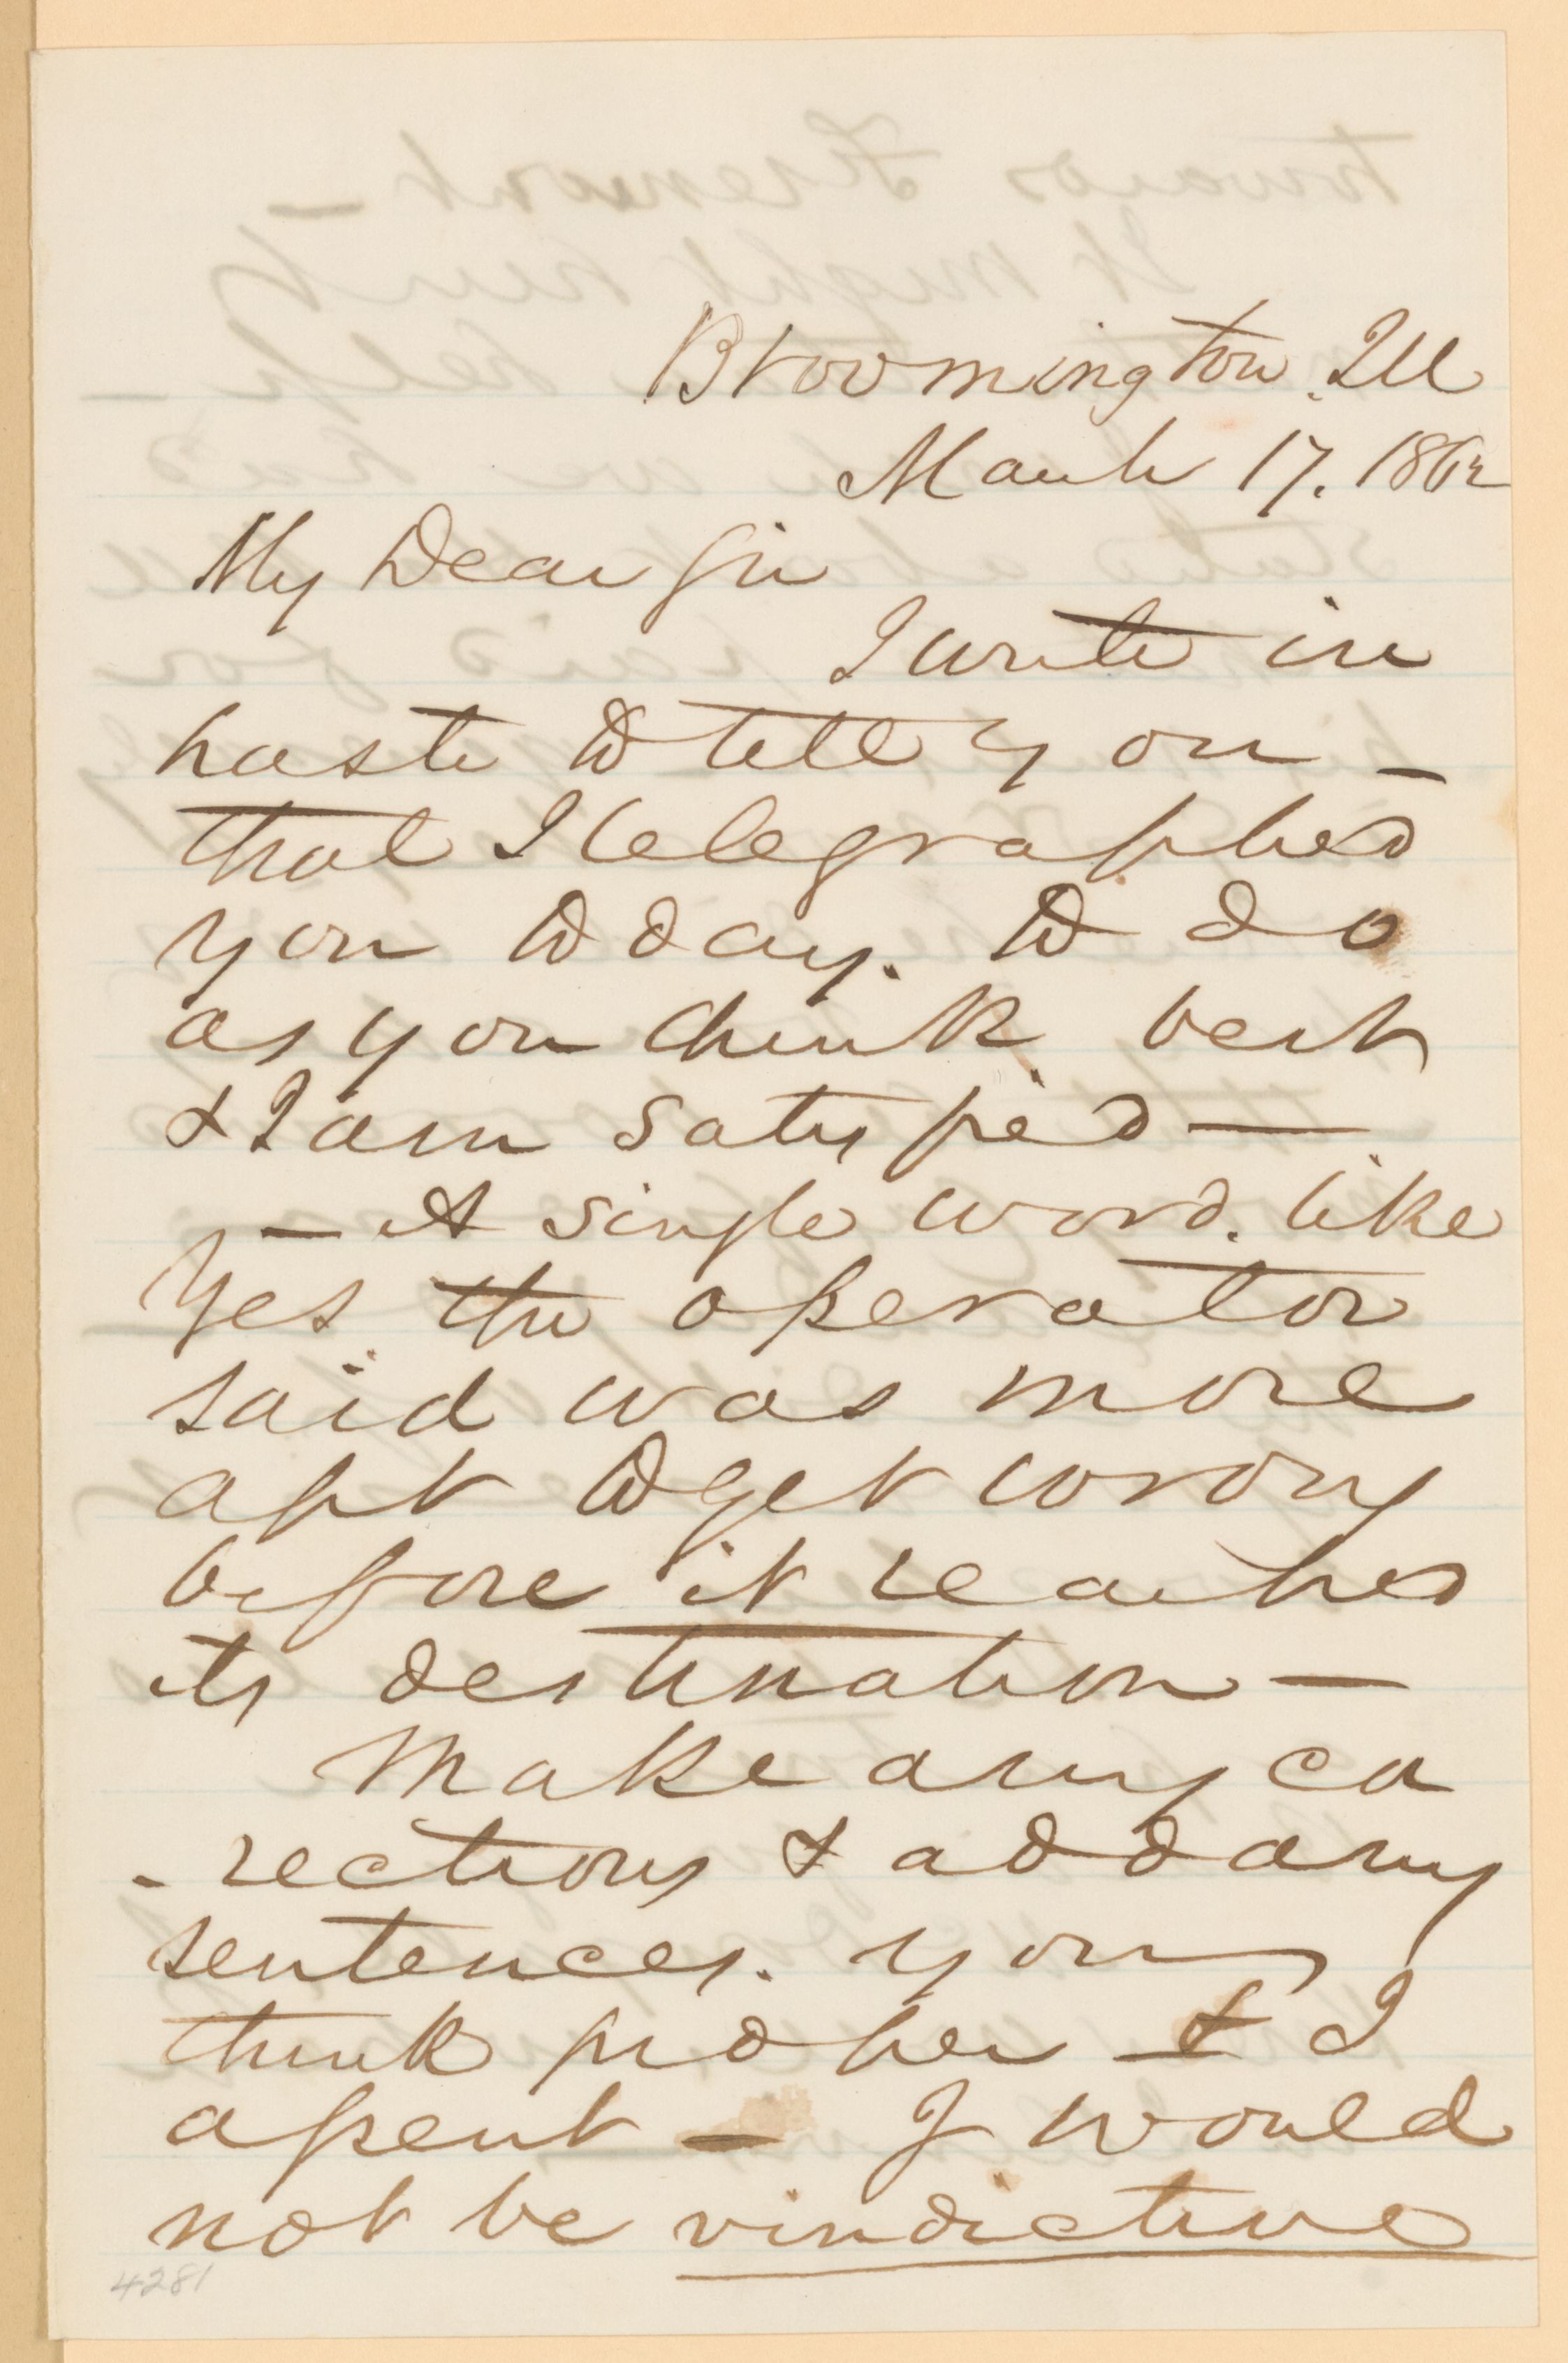 Bloomington. Ill
March 17. 1862
My Dear Sir
I write in
haste to tell you –
that I telegraphed
you to day. to do
as you think best
& I am satisfied —
— A single word. like
Yes the operator
said was more
apt to get wrong
before it reached
its destination —
Make any co
- rections & add any
sentences. you
think proper & I
assent — I would
not be vindictive
4281